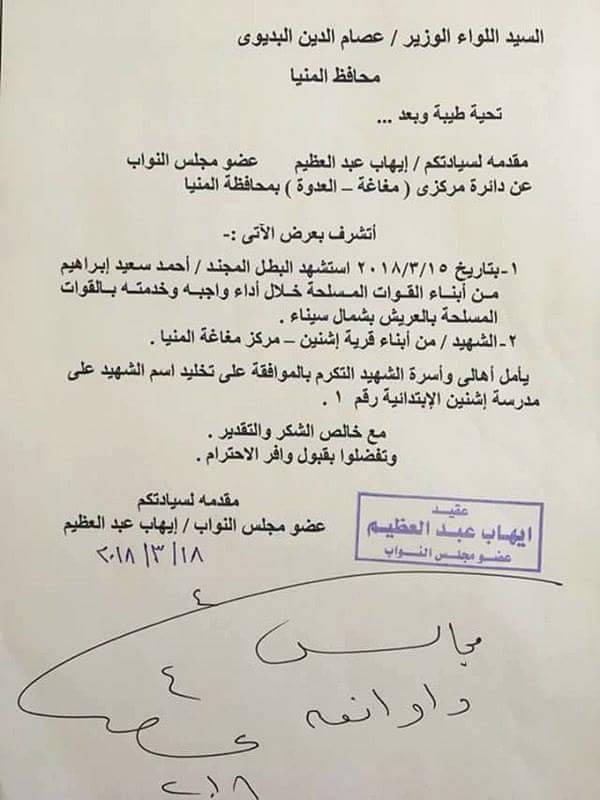 السيد اللواء الوزير / عصام الدين البديوى
محافظ المنيا
تحية طيبة وبعد ...
مقدمه لسيادتكم / إيهاب عبد العظيم عضو مجلس النواب
عن دائرة مركزى ( مغاغة – العدوة ) بمحافظة المنيا
أتشرف بعرض الآتى :-
١- بتاريخ ٢٠١٨/٣/١٥ استشهد البطل المجند / أحمد سعيد إبراهيم
من أبناء القوات المسلحة خلال أداء واجبه وخدمته بالقوات
المسلحة بالعريش بشمال سيناء .
٢- الشهيد / من أبناء قرية إشنين – مركز مغاغة المنيا .
يأمل أهالى وأسرة الشهيد التكرم بالموافقة على تخليد اسم الشهيد على
مدرسة إشنين الإبتدائية رقم ١ .
مع خالص الشكر والتقدير .
وتفضلوا بقبول وافر الاحترام .
مقدمه لسيادتكم
عضو مجلس النواب / إيهاب عبد العظيم
٢٠١٨/٣/١٨
عقيد
ايهاب عبد العظيم
عضو مجلس النواب